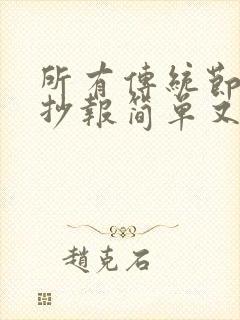 所有傳統節
抄報简单又
趙克石